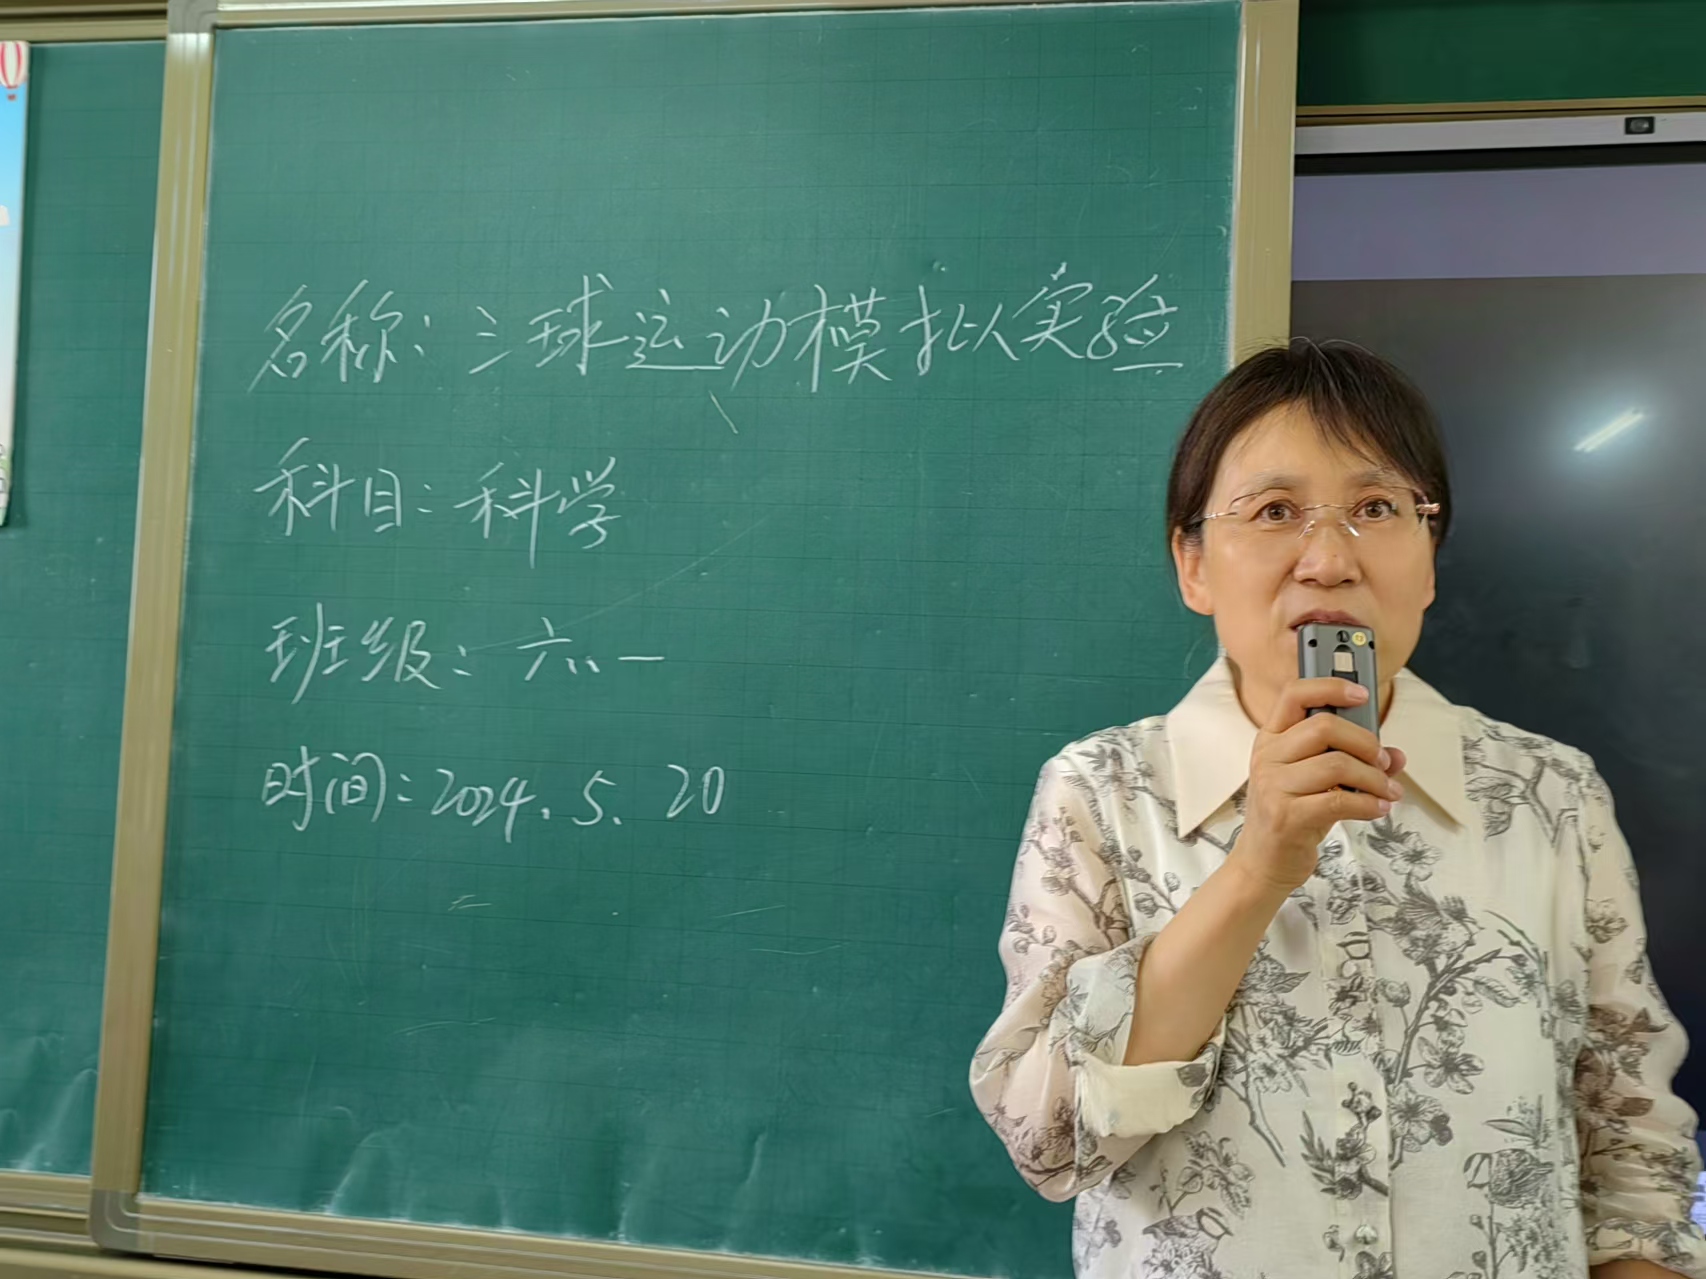 名称：三球运动模拟实验
科目：科学
班级：六.一
时间：2024.5.20